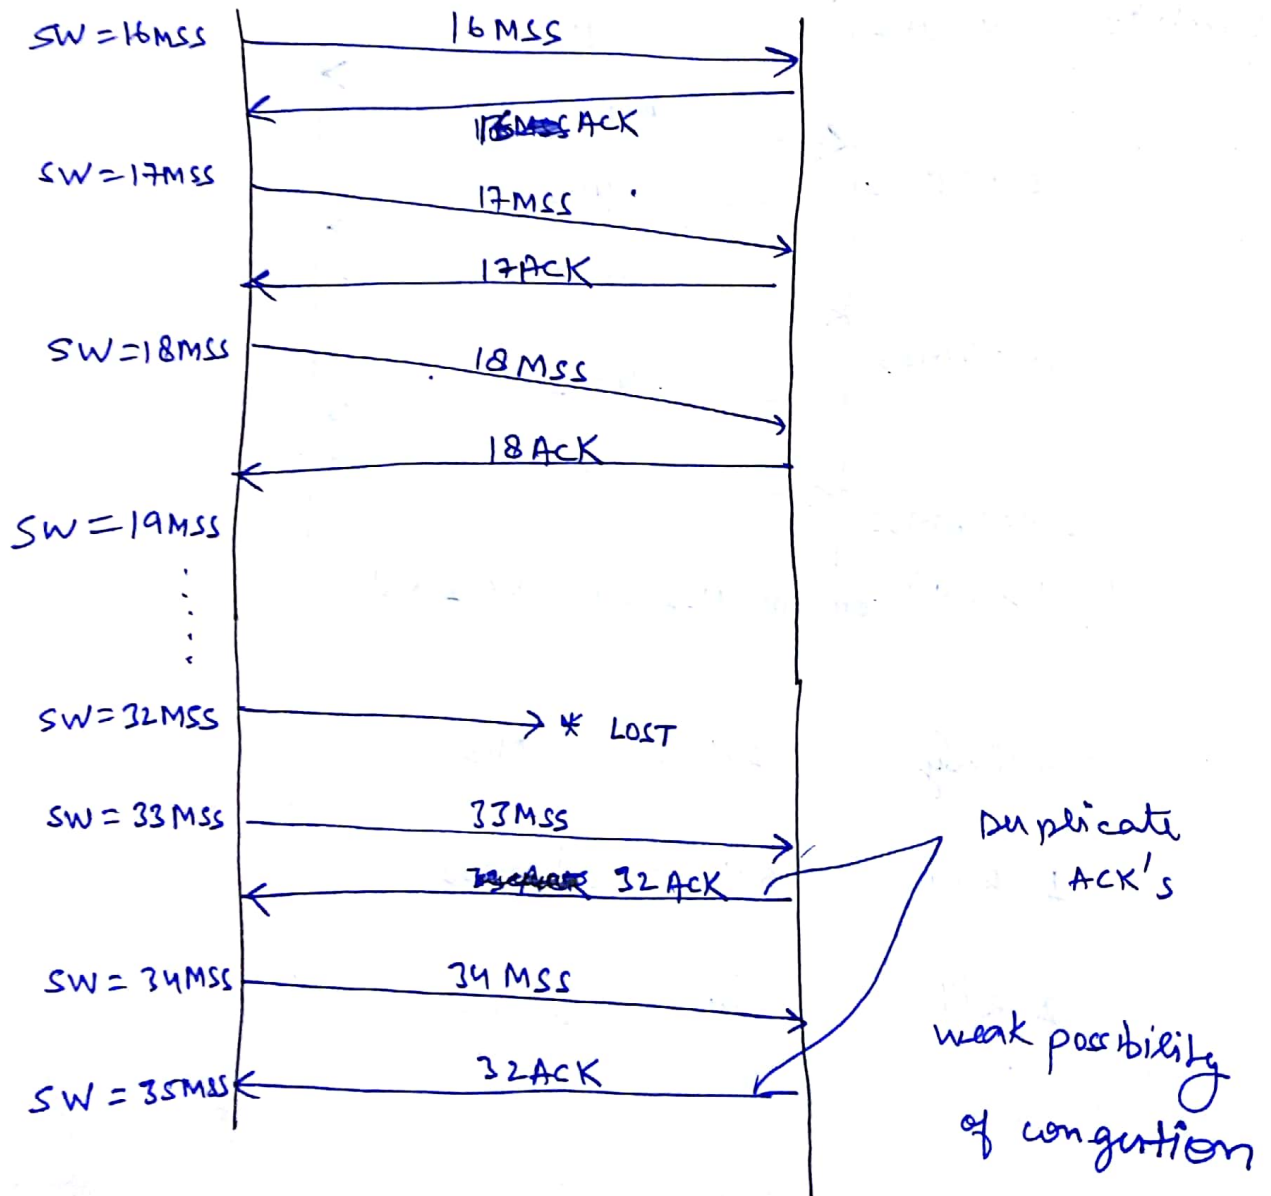 SW=16MSS
16MSS
ACK
SW=17MSS
17MSS
17ACK
SW=18MSS
18MSS
18ACK
SW=19MSS
SW=32MSS
* LOST
SW=33MSS
33MSS
32ACK
Duplicate
ACK's
SW=34MSS
34MSS
32ACK
SW=35MSS
weak possibility
of congertion